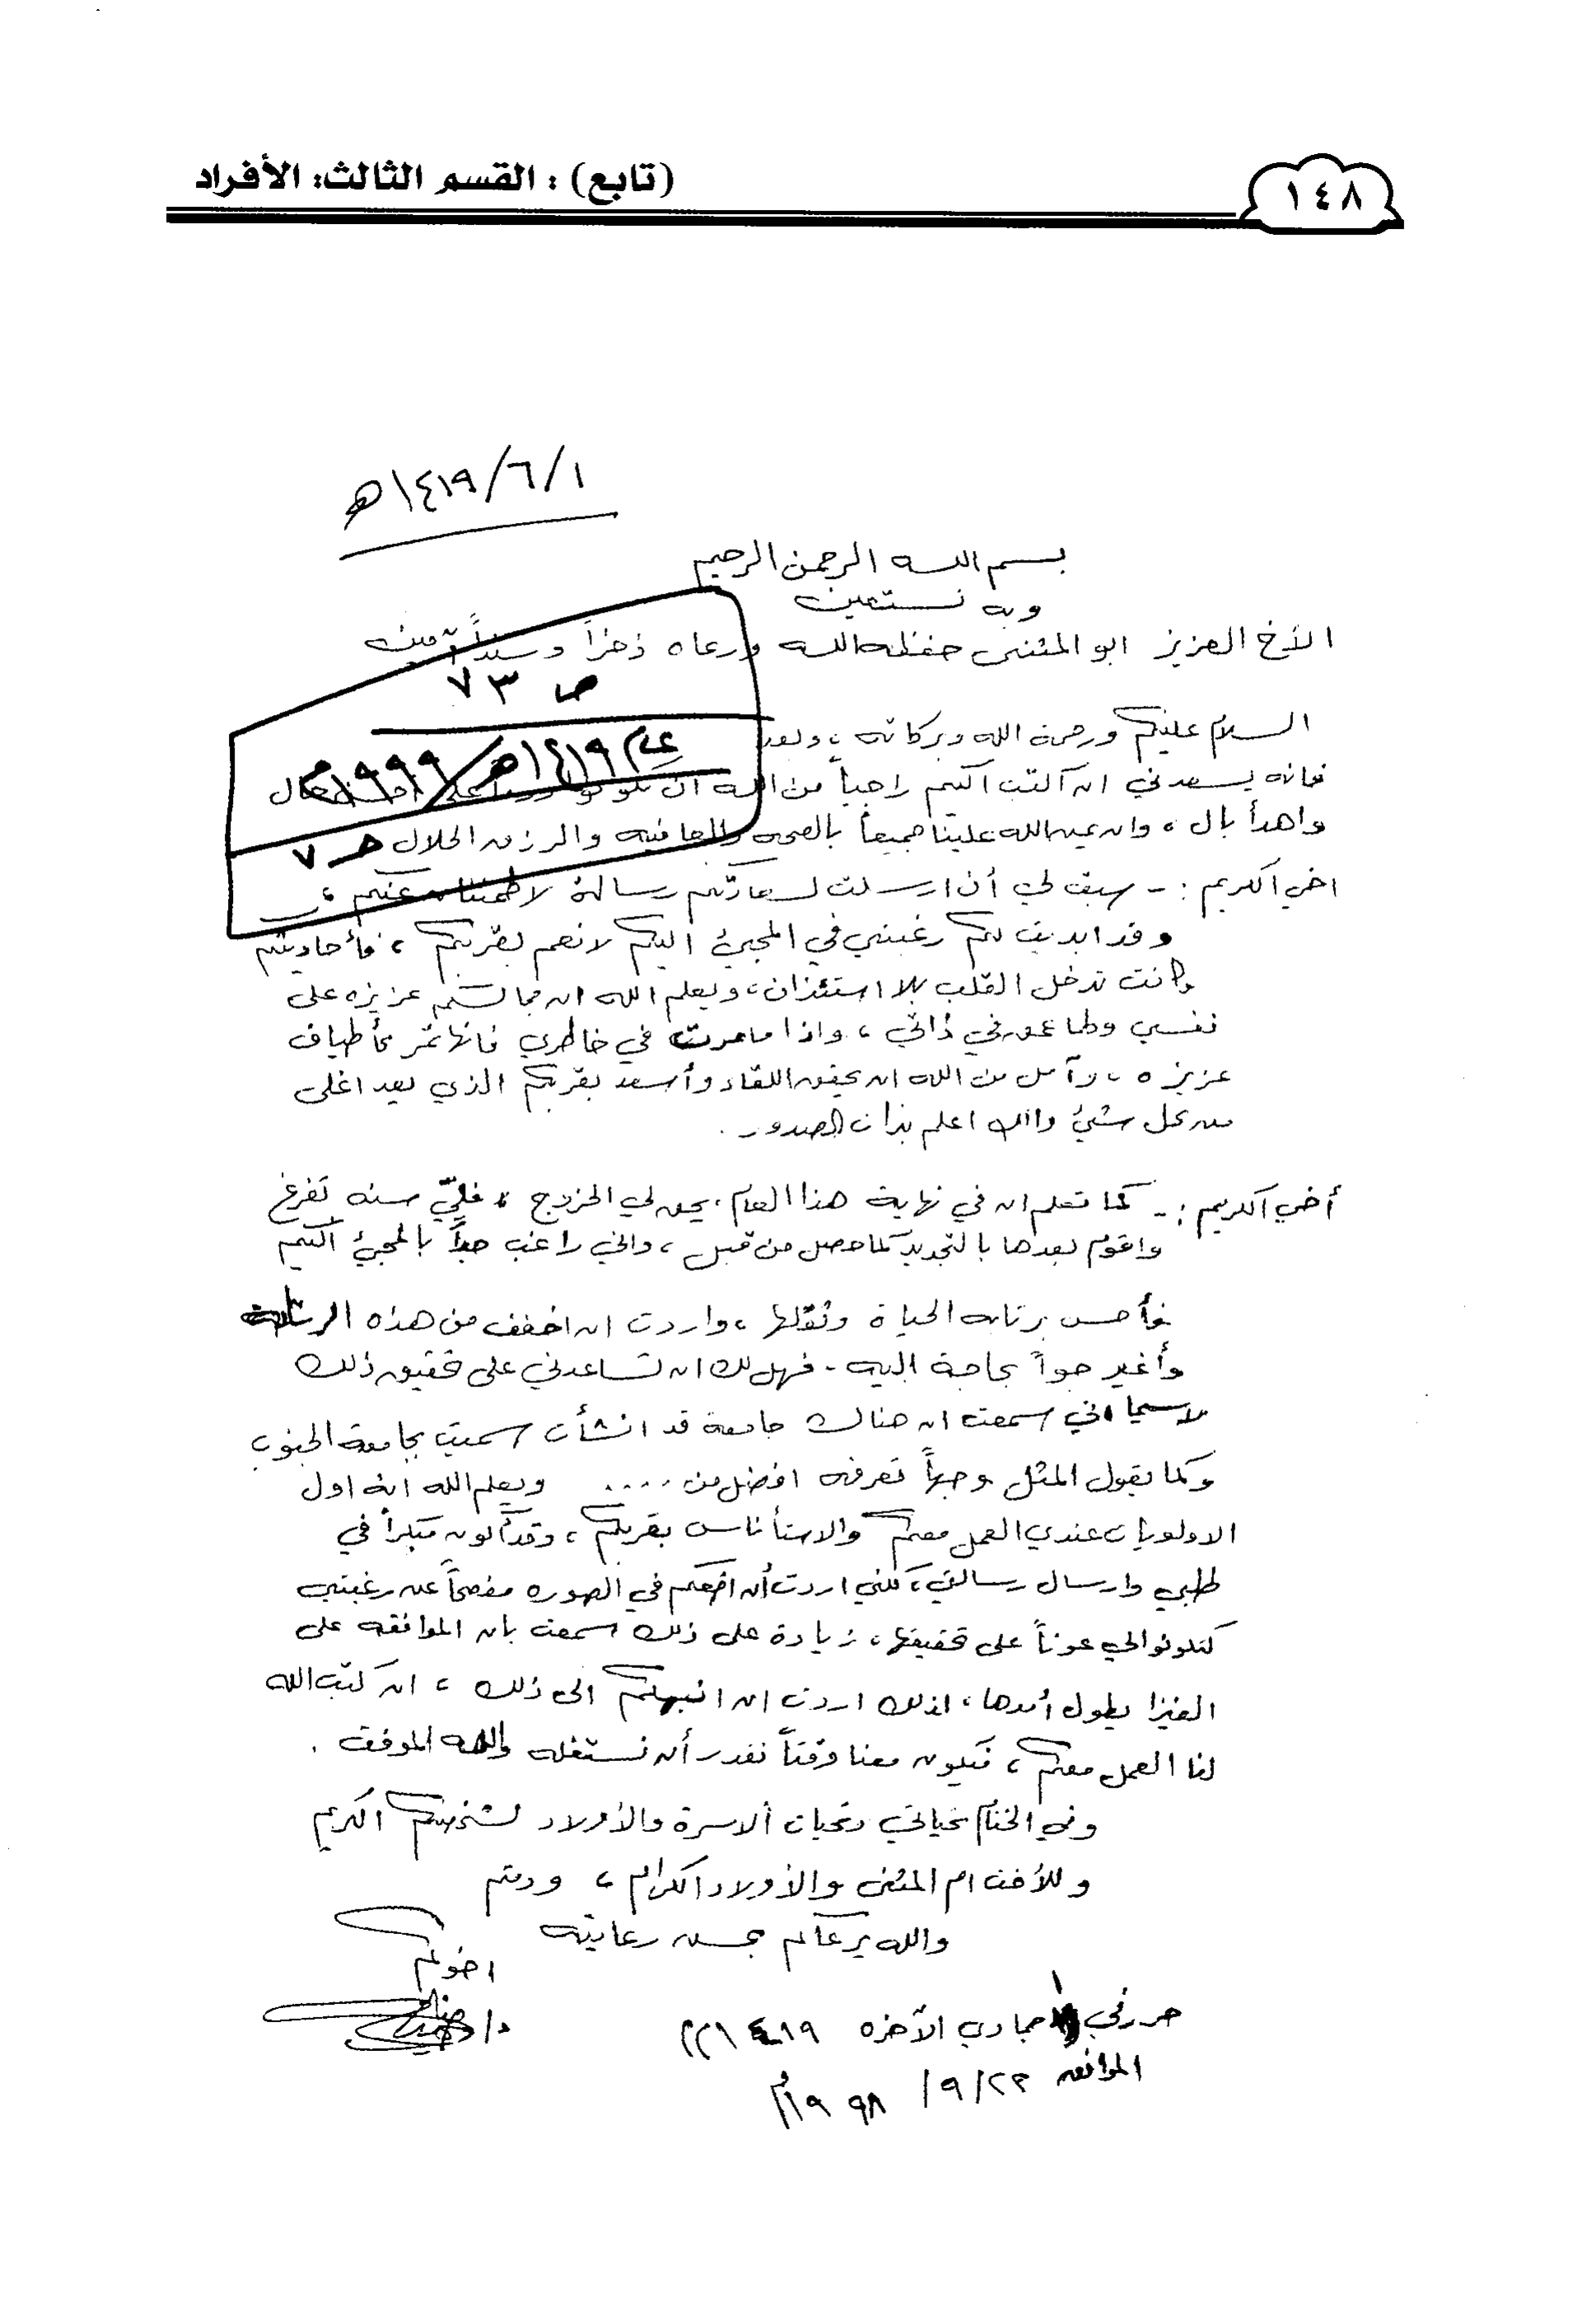 ١٤٨
(تابع) : القسم الثالث: الأفراد
١/٦/١٤١٩هـ
بسم الله الرحمن الرحيم
وبه نستعين
الأخ العزيز ابو المثنى حفظه الله ورعاه ذخراً وسنداً آمين
ص ٧٣
السلام عليكم ورحمة الله وبركاته ، وبعد
عام ١٤١٩هـ/١٩٩٩م
فانه يسعدني ان اكتب اليكم راجياً من الله ان تكونوا حال
واهدأ بال ، وان يمن الله علينا جميعاً بالصحه والعافيه والرزق الحلال
حـ ٧
اخي الكريم :- سبق لي أن ارسلت لسعادتكم رسالة لاطمئنان عنكم ،
وقد ابديت لكم رغبتي في المجيئ اليكم لانعم بقربكم ، فأحاديثكم
كانت تدخل القلب بلا استئذان ، ويعلم الله ان مجالسكم عزيزه على
نفسي ولها عمق في ذاتي ، واذا ما مرت في خاطري فانها تمر كأطياف
عزيزه ، وآمل من الله ان يحقق اللقاء وأسعد بقربكم الذي يعد اغلى
من كل شيئ والله اعلم بذات الصدور .
أخي الكريم :- كما تعلم ان في نهاية هذا العام يحق لي الخروج ، فلي سنه تفرغ
واقوم بعدها بالتجديد كما حصل من قبل ، واني راغب جداً بالمجيئ اليكم
فأحس برتابه الحياة وثقلها ، واردت ان اخفف من هذه الرتابه
وأغير جواً بحاجة اليه . فهل لك ان تساعدني على تحقيق ذلك
لاسيما اني سمعت ان هناك جامعة قد انشأت سميت بجامعة الجنوب
وكما يقول المثل وجهاً تعرفه افضل من .... ويعلم الله انه اول
الاولويات عندي العمل معكم والاستأناس بقربكم ، وقد اكون مبكراً في
طلبي وارسال رسالتي ، لكني اردت أن اضعكم في الصوره مفصحاً عن رغبتي
لتكونوا لي عوناً على تحقيقها ، زيادة على ذلك سمعت بان الموافقه على
الفيزا يطول أمدها ، لذلك اردت ان انبهكم الى ذلك ، ان كتب الله
لنا العمل معكم ، فيكون معنا وقتاً نقدر أن نستغله والله الموفق .
وفي الختام تحياتي وتحيات الاسرة والأولاد لشخصكم الكريم
وللأخت ام المثنى والأولاد الكرام ، ودمتم
والله يرعاكم بحسن رعايته
اخوكم
د/
حرر في ١ جمادي الآخره ١٤١٩
الموافق ٢٢/٩/١٩٩٨م